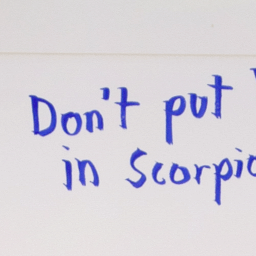 Don't put
in Scorpio